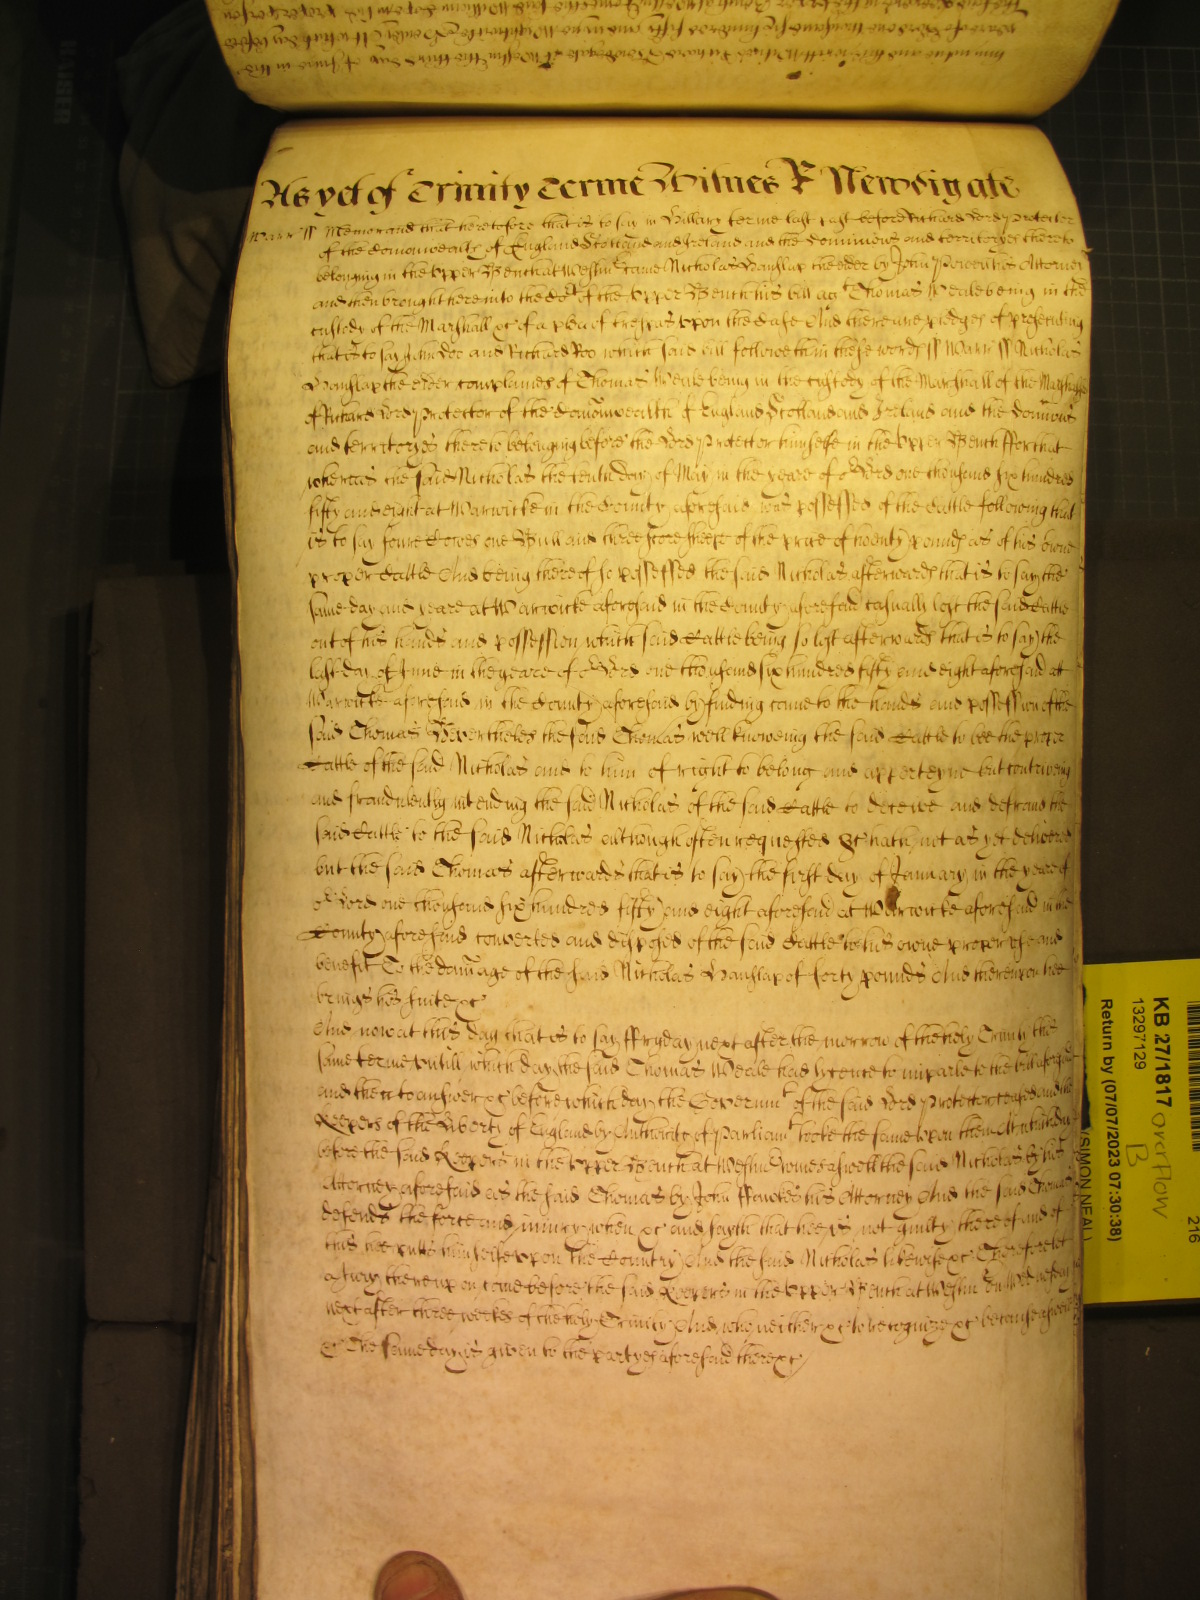 As yet of Trinity Terme Witnes R Newdigate
Warr ss Memorand that heretofore that is to say in Hillary terme last past before Richard Lord Protector
of the Comonwealth of England Scotland and Ireland and the Dominions and territoryes thereto
belonging in the Upper Bench at Westmr came Nicholas Hanslap the elder by John his Attorney
and then brought here into the Cort of the Upper Bench his bill agt Thomas Weale being in the
custody of the Marshall &c of a plea of trespas upon the Case And there are pledges of prosecuting
that is to say John Doo and Richard Roo which said bill followeth in these words ss Warr ss Nicholas
Hanslap the elder complaines of Thomas Weale being in the custody of the Marshall of the Marshalsea
of Richard Lord Protector of the Comonwealth of England Scotland and Ireland and the Dominions
and territoryes thereto belonging before the Lord Protector himselfe in the Upper Bench ffor that
whereas the said Nicholas the tenth day of May in the yeare of or Lord one thousand six hundred
fifty and eight at Warwicke in the County aforesaid was possessed of the Cattle following that
is to say foure Cowes one Bull and three score sheepe of the price of twenty pounds as of his owne
proper Cattle And being thereof so possessed the said Nicholas afterwards that is to say the
same day and yeare at Warwicke aforesaid in the County aforesaid casually lost the said Cattle
out of his hands and possession which said Cattle being so lost afterwards that is to say the
last day of June in the yeare of or Lord one thousand six hundred fifty and eight aforesaid at
Warwicke aforesaid in the County aforesaid by finding came to the hands and possession of the
said Thomas Nevertheles the said Thomas well knoweing the said Cattle to bee the proper
Cattle of the said Nicholas and to him of right to belong and apperteyne but contriveing
and fraudulently intending the said Nicholas of the said Cattle to deceive and defraud the
said Cattle to the said Nicholas although often requested &c hath not as yet delivered
but the said Thomas afterwards that is to say the first day of January in the yeare of
or Lord one thousand six hundred fifty and eight aforesaid at Warwicke aforesaid in the
County aforesaid converted and disposed of the said Cattle to his owne proper use and
benefit To the damage of the said Nicholas Hanslap of forty pounds And thereupon hee
brings his suite &c
And now at this day that is to say ffryday next after the morrow of the holy Trinity this
same terme untill which day the said Thomas Weale had lycence to imparle to the bill aforesaid
and then to answer &c before which day the Governmt of the said Lord Protector ceased and the
Keepers of the Liberty of England by Authority of Parliamt tooke the same upon them At which day
before the said Keepers in the Upper Bench at Westmr comes aswell the said Nicholas by his
Attorney aforesaid as the said Thomas by John ffowkes his Attorney And the said Thomas
defends the force and injury when &c and sayth that hee is not guilty thereof and of
this hee putts himselfe upon the Country And the said Nicholas likewise &c Therefore let
a Jury thereupon come before the said Keepers in the Upper Bench at Westmr on Wednesday
next after three weekes of the holy Trinity And who neither &c to recognize &c because aswell
&c The same day is given to the partyes aforesaid there &c
KB 27/1817 overflow
B
13297129
Return by (07/07/2023 07:30:38)
(SIMON NEAL)
216